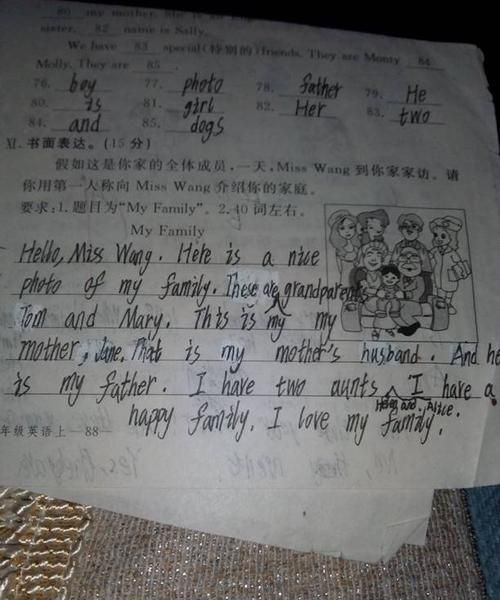 80 my mother. She is
sister, 82 name is Sally.
We have 83 special(特别的)friends. They are Monty 84
Molly. They are 85.
76. boy 77. photo 78. father 79. He
80. is 81. girl 82. Her 83. two
84. and 85. dogs
XI. 书面表达。(15分)
假如这是你家的全体成员,一天,Miss Wang 到你家家访。请
你用第一人称向 Miss Wang 介绍你的家庭。
要求:1. 题目为“My Family”。2. 40 词左右。
My Family
Hello, Miss Wang. Here is a nice
photo of my family. These are grandparents
Tom and Mary. This is my my
mother, Jane. That is my mother's husband. And he
is my father. I have two aunts Helen and Alice. I have a
happy family. I love my family.
年级英语上 —88—